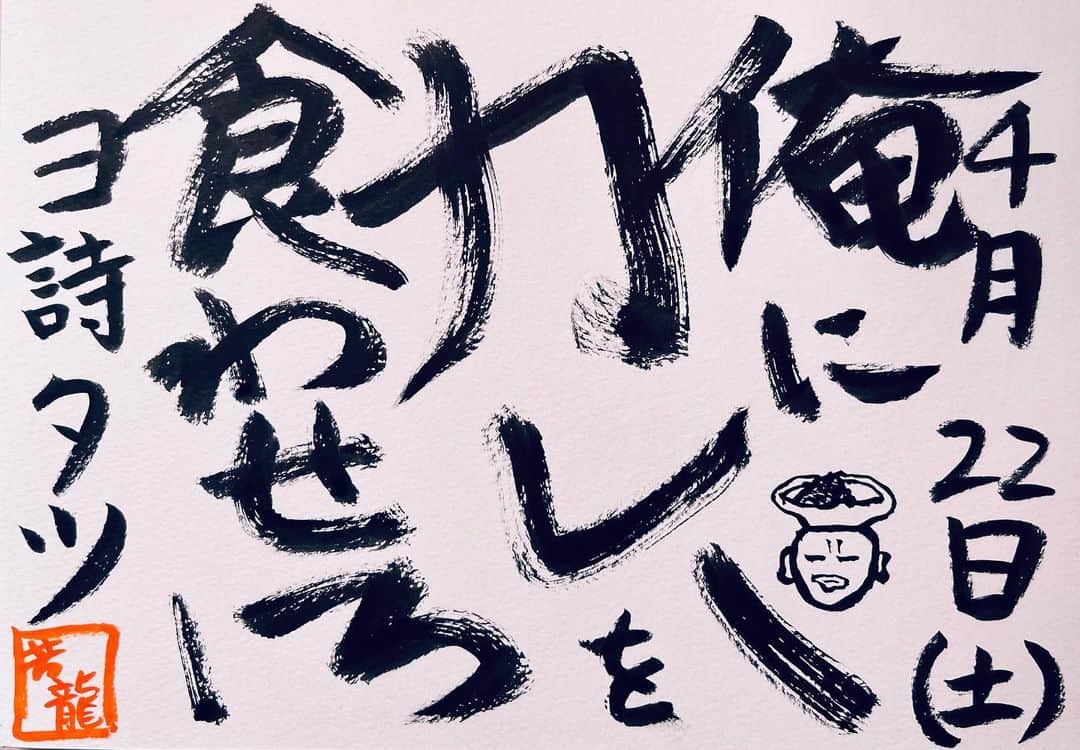 4月22日(土)
俺に
カレーを
食わせろー
ヨ詩タツ
龍